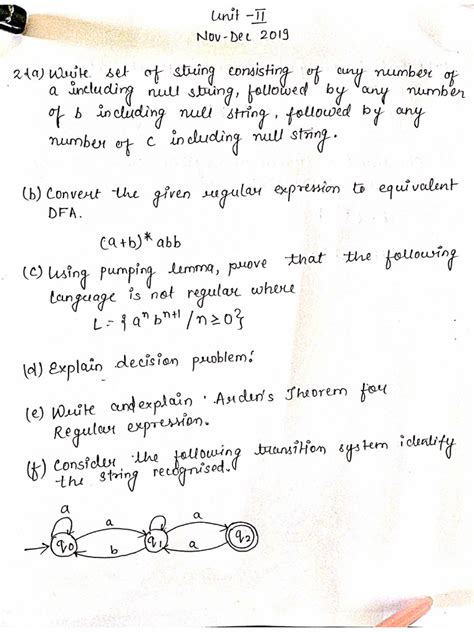 Unit - II
Nov-Dec 2019
2.(a) Write set of string consisting of any number of
a including null string, followed by any number
of b including null string, followed by any
number of c including null string.
(b) Convert the given regular expression to equivalent
DFA.
(a+b)* abb
(c) Using pumping lemma, prove that the following
language is not regular where
L = { aⁿ bⁿ⁺¹ / n ≥ 0 }
(d) Explain decision problem.
(e) Write and explain Arden's Theorem for
Regular expression.
(f) Consider the following transition system identify
the string recognised.
a
a
a
q0
b
q1
a
q2